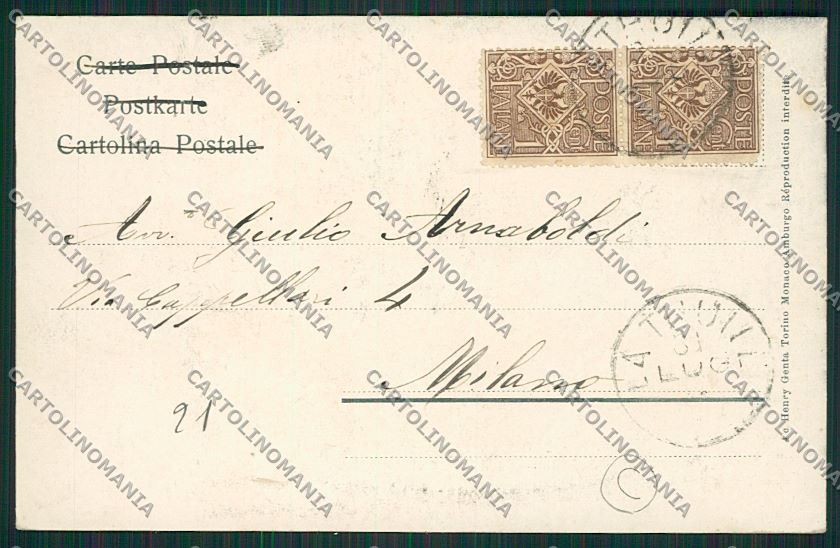 Carte Postale
Postkarte
Cartolina Postale
POSTE ITALIANE
POSTE ITALIANE
Avv. Giulio Arnaboldi
Via Cappellari 4
Milano
LA THUILE
21
C
Henry Genta Torino Monaco Amburgo Réproduction interdite
CARTOLINOMANIA